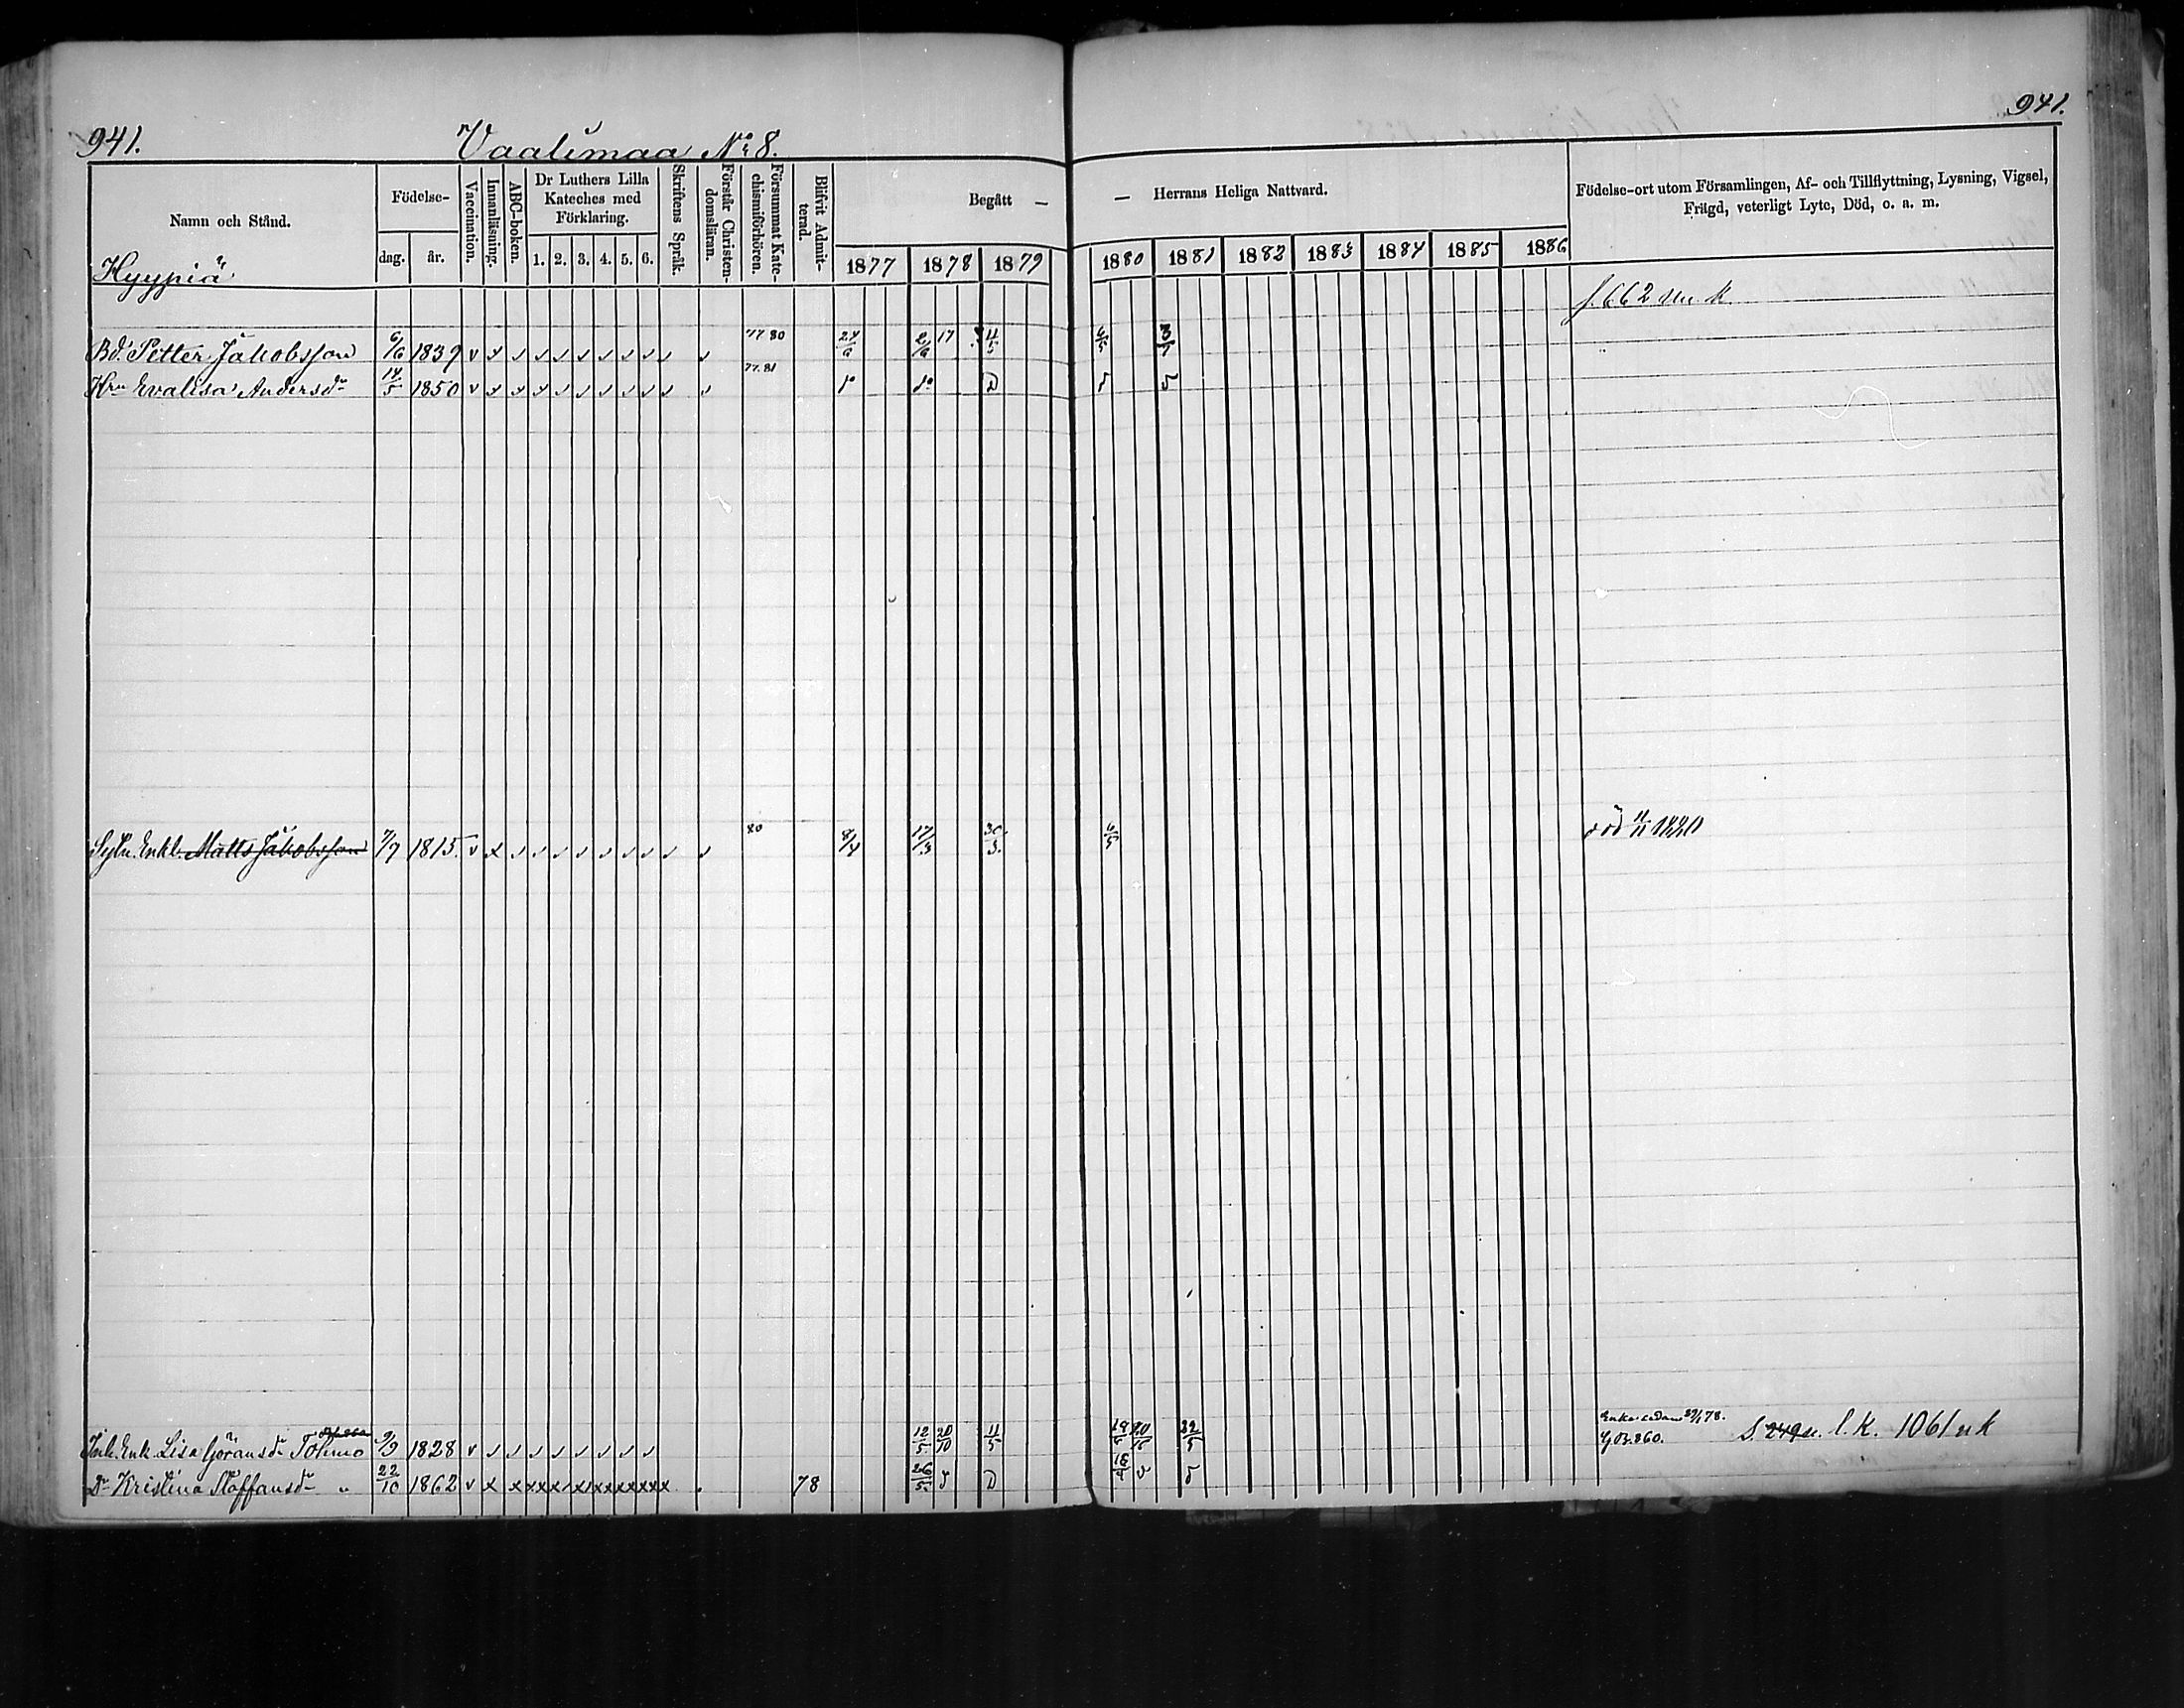 941.
Vaalimaa No 8.
941.
Namn och Stånd.
Födelse-
dag.
år.
Vaccination.
Innanläsning.
ABC-boken.
Dr Luthers Lilla Kateches med Förklaring.
1. 2. 3. 4. 5. 6.
Skriftens Språk.
Förstår Christen-domsläran.
Försummat Kate-chismiförhören.
Blifvit Admit-terad.
Begått —
— Herrans Heliga Nattvard.
1877 1878 1879 1880 1881 1882 1883 1884 1885 1886
Födelse-ort utom Församlingen, Af- och Tillflyttning, Lysning, Vigsel,
Frägd, veterligt Lyte, Död, o. a. m.
Hyypiä
Bd. Petter Jakobsson 6/6 1839 v 77 80 24/6 2/6 17 11/5 6/5 3/5
Hru Evalisa Andersdr 14/5 1850 v 77. 81
Enkl. Matts Jakobsson 7/7 1815 v 80 17/3 30/3 6/5 död 11/11 1880
Inh. Enk. Lisa Göransdr Tohmo 9/9 1828 v 12/5 20/10 11/5 22/5 860. l. K. 1061 nk
Dr Kristina Staffansdr " 22/10 1862 v 78 26/5